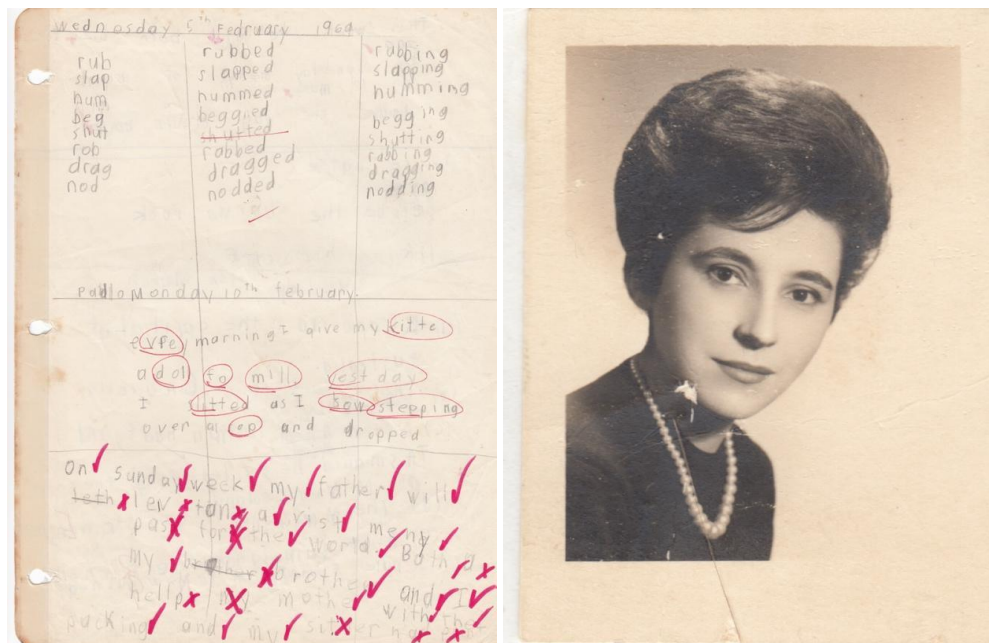 Wednesday 5th February 1969
rub rubbed rubbing
slap slapped slapping
hum hummed humming
beg begged begging
shut shutted shutting
rob robbed robbing
drag dragged dragging
nod nodded nodding
Monday 10th february.
morning I give my kitte
a dol to mill.est day
I sutted as I sow stepping
over a cop and dropped
On sunday week my father will
lev a
past for the world. Both
my brother brother
help my mother and I
with the
packing and my sitter